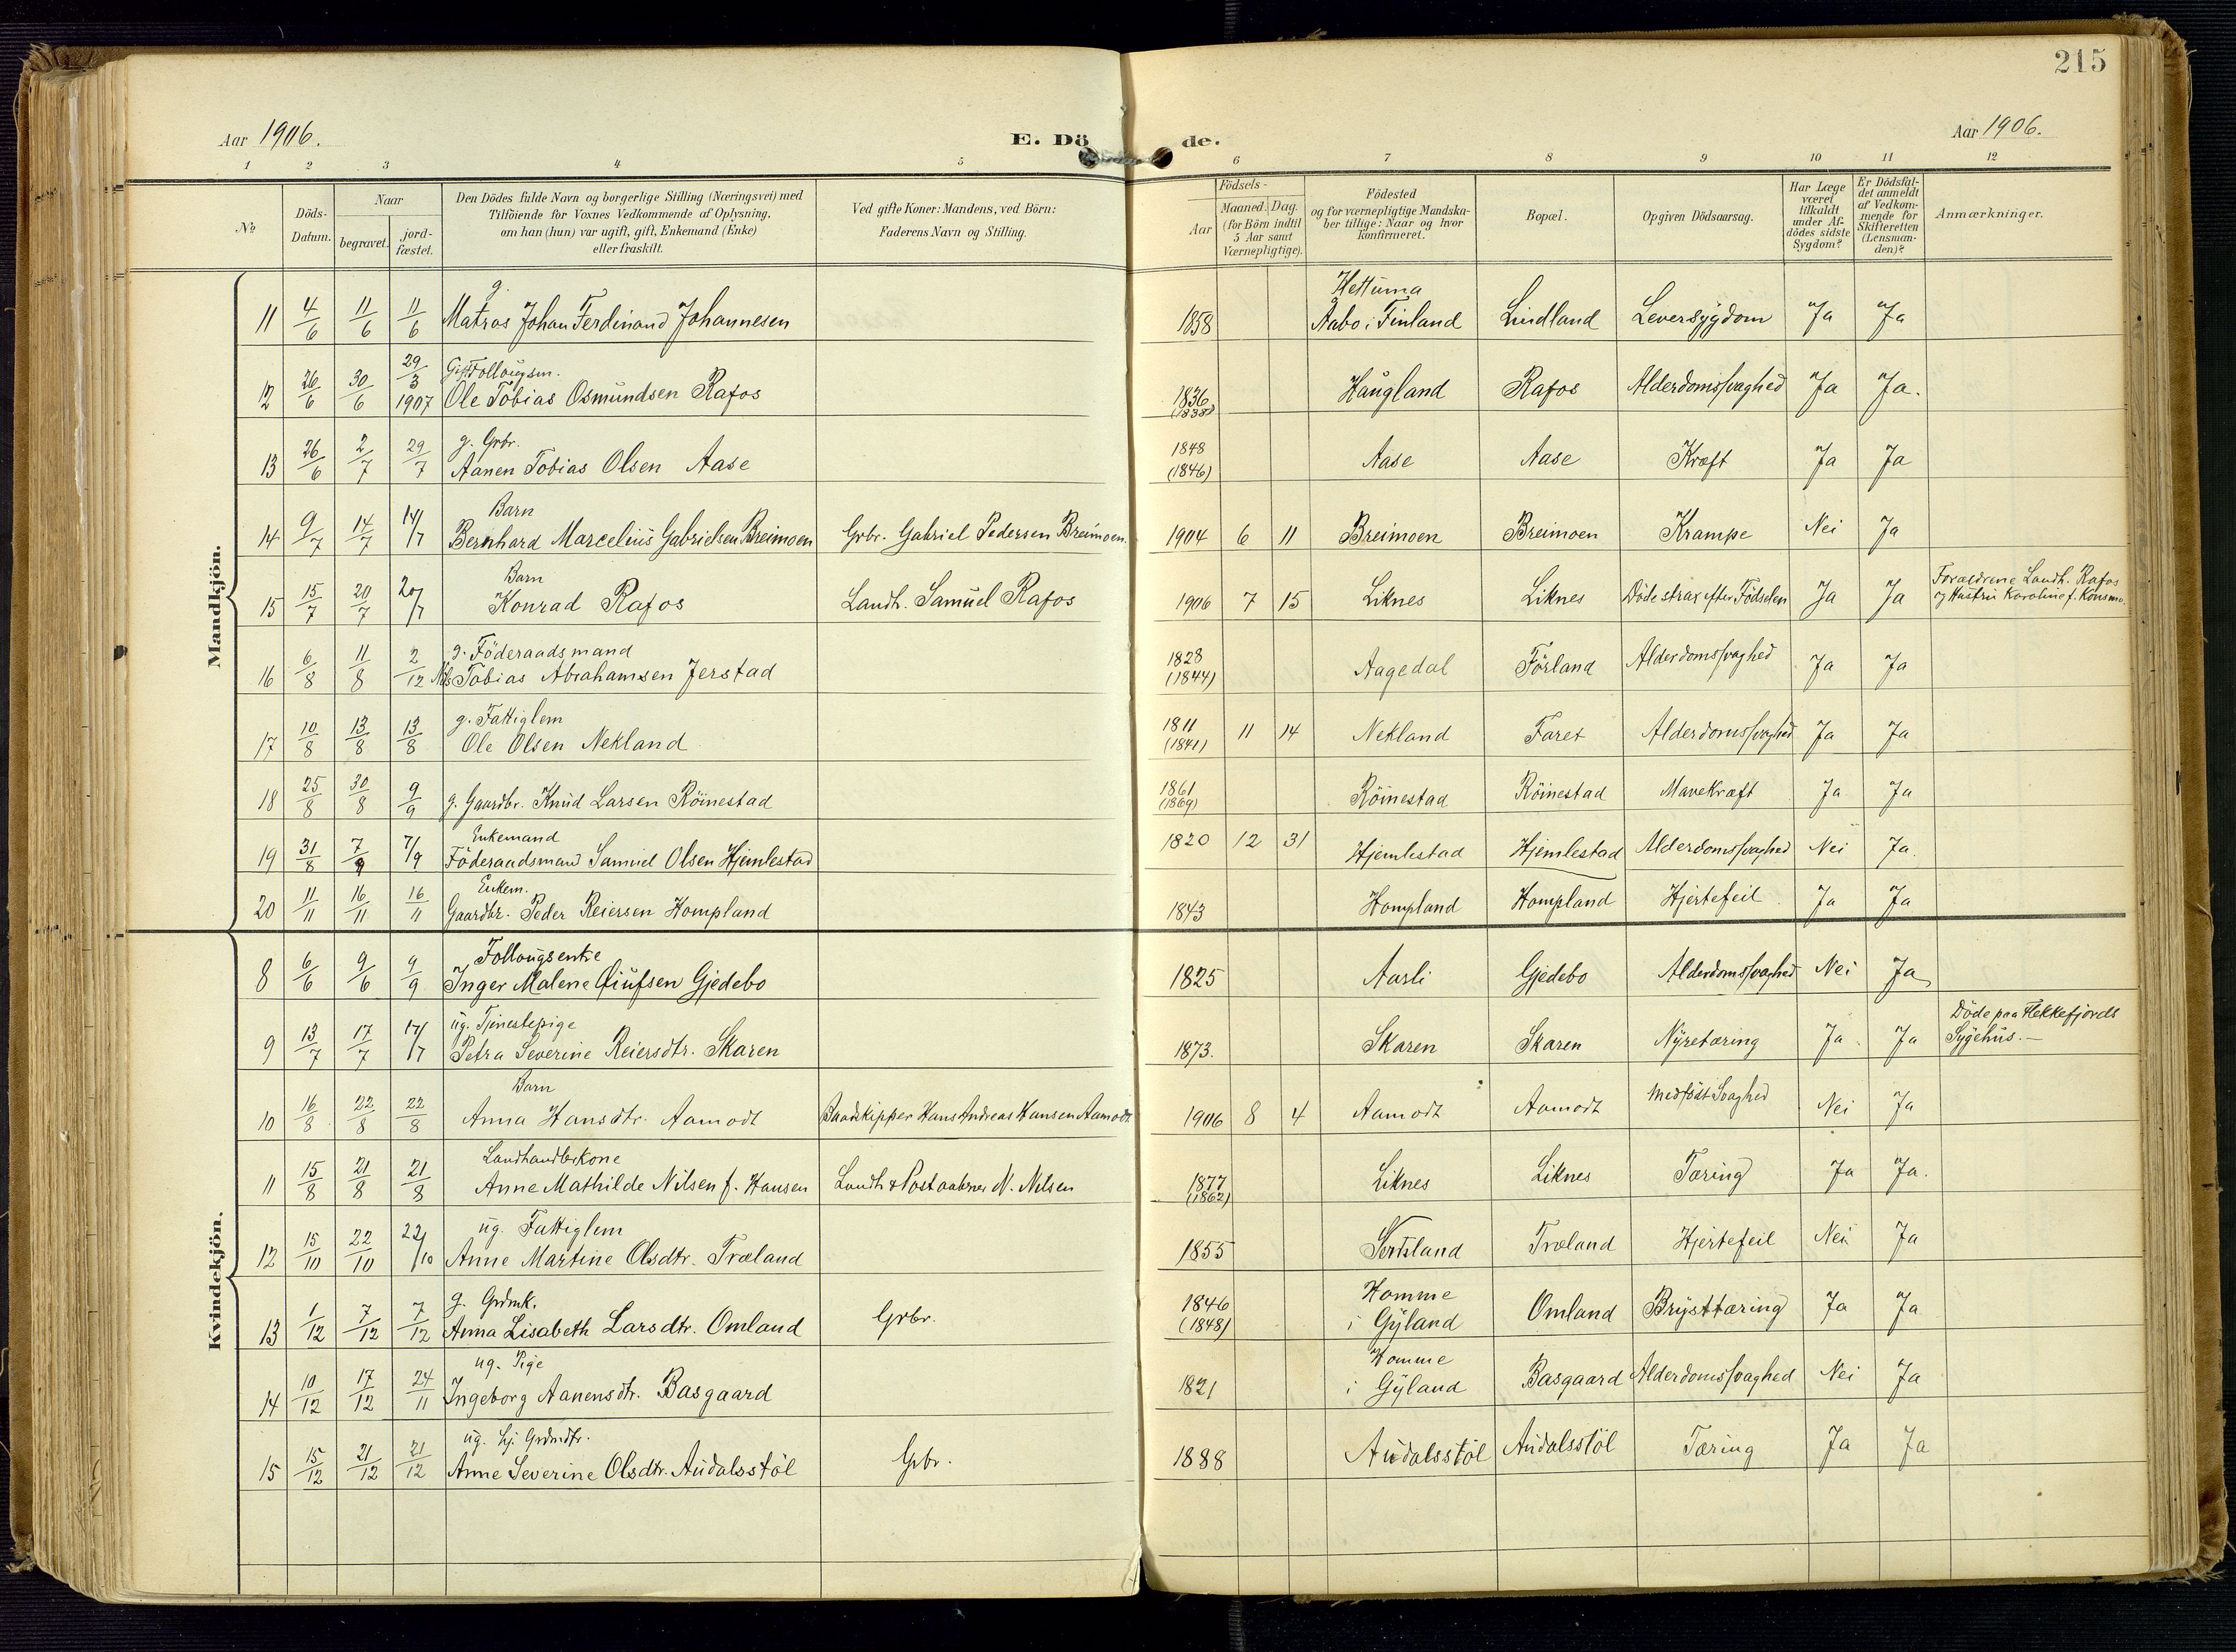 215
Aar 1906.
E. Dö de.
Aar 1906.
1 2 3 4 5 6 7 8 9 10 11 12
No
Döds-Datum.
Naar
begravet.
jord-fæstet.
Den Dödes fulde Navn og borgerlige Stilling (Næringsvei) med
Tilföiende for Voxnes Vedkommende af Oplysning,
om han (hun) var ugift, gift, Enkemand (Enke)
eller fraskilt.
Ved gifte Koner: Mandens, ved Börn:
Faderens Navn og Stilling.
Födsels-
Aar
Maaned. Dag.
(for Börn indtil
5 Aar samt
Værnepligtige).
Födested
og for værnepligtige Mandska-
ber tillige: Naar og hvor
konfirmeret.
Bopæl.
Opgiven Dödsaarsag.
Har Læge
været
tilkaldt
under Af-
dödes sidste
Sygdom?
Er Dödsfal-
det anmeldt
af Vedkom-
mende for
Skifteretten
(Lensman-
den)?
Anmærkninger.
Mandkjön.
g. Hettuma
11 4/6 11/6 11/6 Matros Johan Ferdinand Johannesen 1858 Aabo i Finland Lindland Leversygdom Ja Ja
Gift Follougsm.
12 26/6 30/6 29/3 1907 Ole Tobias Osmundsen Rafos 1836 (1838) Haugland Rafos Alderdomssvaghed Ja Ja.
g. Grbr.
13 26/6 2/7 29/7 Aanen Tobias Olsen Aase 1848 (1846) Aase Aase Kræft Ja Ja
Barn
14 9/7 14/7 14/7 Bernhard Marcelius Gabrielsen Breimoen Grbr. Gabriel Pedersen Breimoen. 1904 6 11 Breimoen Breimoen Krampe Nei Ja
Barn
15 15/7 20/7 20/7 Konrad Rafos Landh. Samuel Rafos 1906 7 15 Liknes Liknes Döde strax efter Födselen Ja Ja Forældrene Landh. Rafos
og Hustru Karoline f. Konsmo.
g. Föderaadsmand
16 6/8 11/8 2/12 Nils Tobias Abrahamsen Jerstad 1828 (1844) Aagedal Förland Alderdomssvaghed Ja Ja
g. Fattiglem
17 10/8 13/8 13/8 Ole Olsen Nekland 1811 (1841) 11 14 Nekland Faret Alderdomssvaghed Ja Ja
18 25/8 30/8 9/9 g. Gaardbr. Knud Larsen Röinestad 1861 (1869) Röinestad Röinestad Mavekræft Ja Ja
Enkemand
19 31/8 7/9 7/9 Föderaadsmand Samuel Olsen Hjemlestad 1820 12 31 Hjemlestad Hjemlestad Alderdomssvaghed Nei Ja.
Enkem.
20 11/11 16/11 16/11 Gaardbr. Peder Reiersen Hompland 1843 Hompland Hompland Hjertefeil Ja Ja
Kvindekjön.
Follougsenke
8 6/6 9/6 9/9 Inger Malene Gjedebo 1825 Aarli Gjedebo Alderdomssvaghed Nei Ja
ug. Tjenestepige
9 13/7 17/7 17/7 Petra Severine Reiersdtr. Skaren 1873. Skaren Skaren Nyretæring Ja Ja Döde paa Flekkefjords
Sygehus.—
Barn
10 16/8 22/8 22/8 Anna Hansdtr. Aamodt Baadskipper Hans Andreas Hansen Aamodt 1906 8 4 Aamodt Aamodt Medfödt Svaghed Nei Ja
Landhandlerkone
11 15/8 21/8 21/8 Anne Mathilde Nilsen f. Hansen Landh & Postaabner N. Nilsen 1877 (1862) Liknes Liknes Tæring Ja Ja.
ug. Fattiglem
12 15/10 22/10 22/10 Anne Martine Olsdtr. Træland 1855 Træland Hjertefeil Nei Ja
g. Grdmk. Homme
13 1/12 7/12 7/12 Anna Lisabeth Larsdtr. Omland Grbr. 1846 (1848) i Gyland Omland Brysttæring Ja Ja
ug. Pige Homme
14 10/12 17/12 24/11 Ingeborg Aanensdtr. Basgaard 1821 i Gyland Basgaard Alderdomssvaghed Nei Ja
ug. hj. Grdmdtr.
15 15/12 21/12 21/12 Anne Severine Olsdtr. Audalsstöl Grbr. 1888 Audalsstöl Audalsstöl Tæring Ja Ja